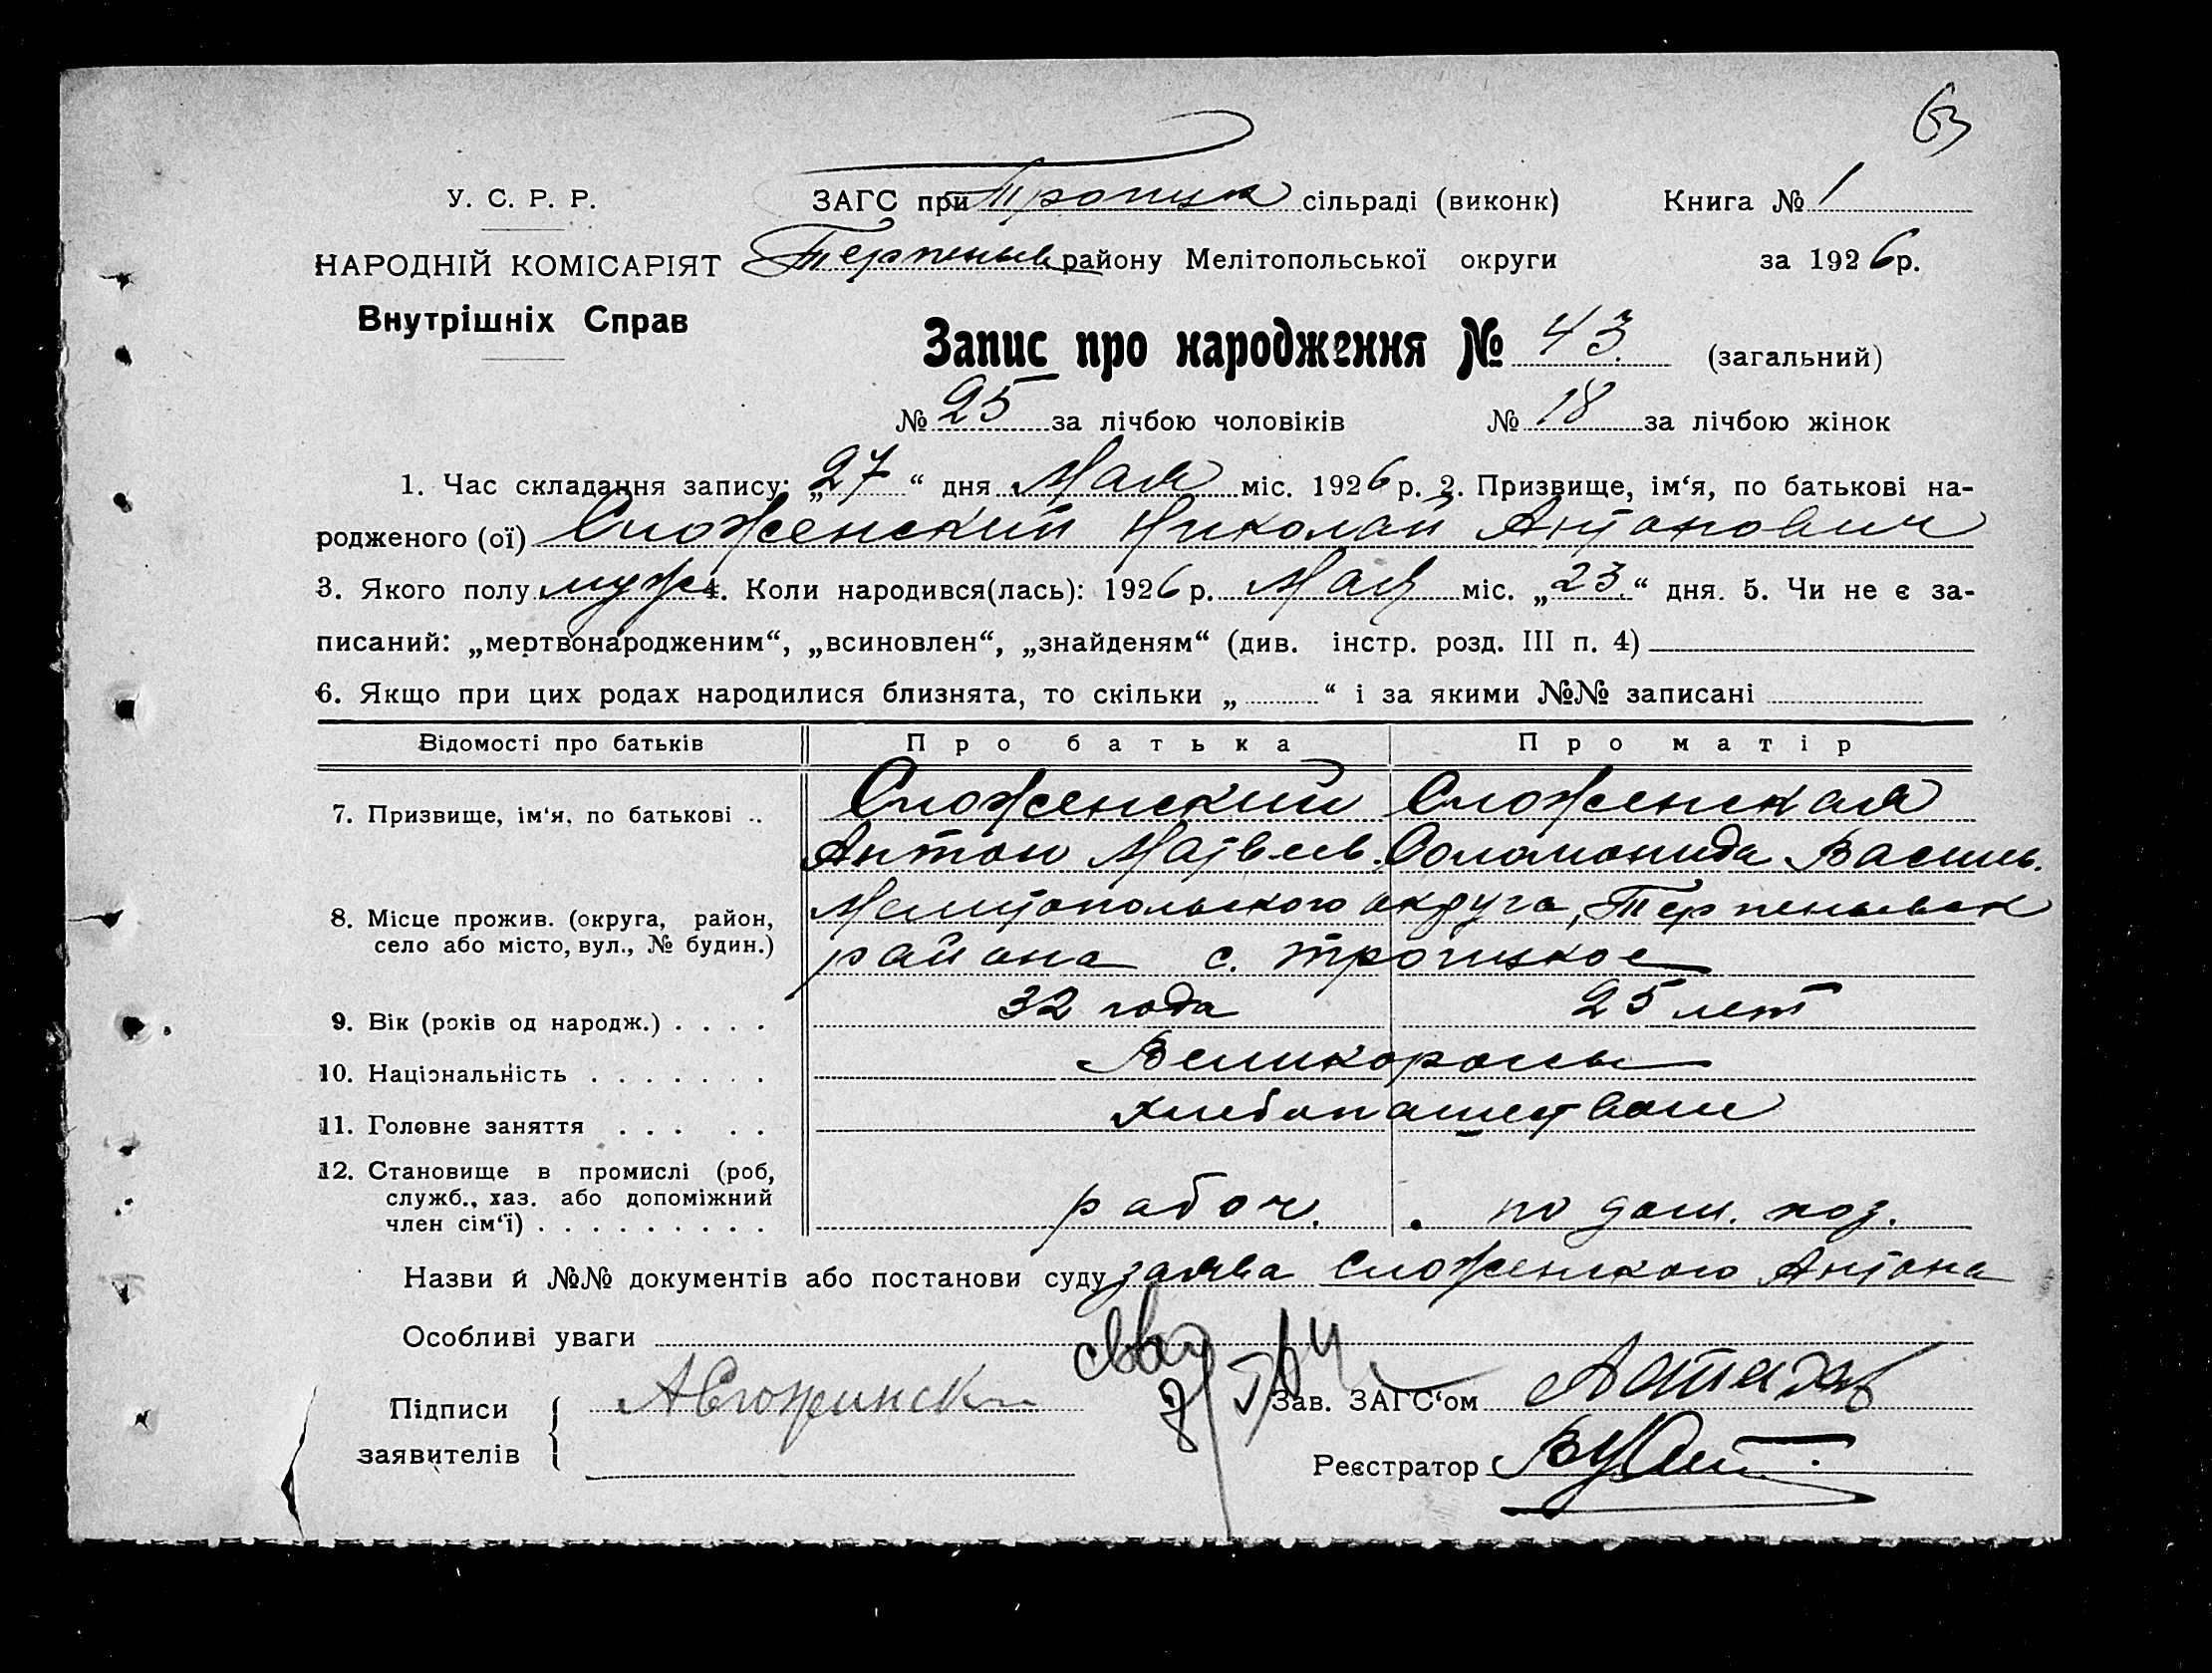 63
У. С. Р. Р.
ЗАГС при Троицк сільраді (виконк)
Книга № 1
НАРОДНІЙ КОМІСАРІЯТ
Терпеньев району Мелітопольської округи
за 1926 р.
Внутрішніх Справ
Запис про народження № 43. (загальний)
№ 25 за лічбою чоловіків № 18 за лічбою жінок
1. Час складання запису: „27“ дня Мая міс. 1926 р. 2. Призвище, ім‘я, по батькові на-
родженого (ої) Сложенский Николай Антонович
3. Якого полу муж 4. Коли народився(лась): 1926 р. Мая міс. „23.“ дня. 5. Чи не є за-
писаний: „мертвонародженим“, „всиновлен“, „знайденям“ (див. інстр. розд. III п. 4)
6. Якщо при цих родах народилися близнята, то скільки „ “ і за якими №№ записані
Відомості про батьків Про батька Про матір
7. Призвище, ім‘я, по батькові .. Сложенский Сложенская
Антон Матвеев. Соломонида Василь.
8. Місце прожив. (округа, район, село або місто, вул., № будин.) Мелитопольского округа, Терпеньевск
района с. Троицкое
9. Вік (років од народж.) . . . . 32 года 25 лет
10. Національність . . . . . . . Великороссы
11. Головне заняття . . . . . Хлебопашеством
12. Становище в промислі (роб, служб., хаз. або допоміжний член сім‘ї) . . . . . . . . . рабоч. . по дом. хоз.
Назви й №№ документів або постанови суду заява Сложенского Антона
Особливі уваги
Підписи
заявителів
Зав. ЗАГС‘ом
Реєстратор